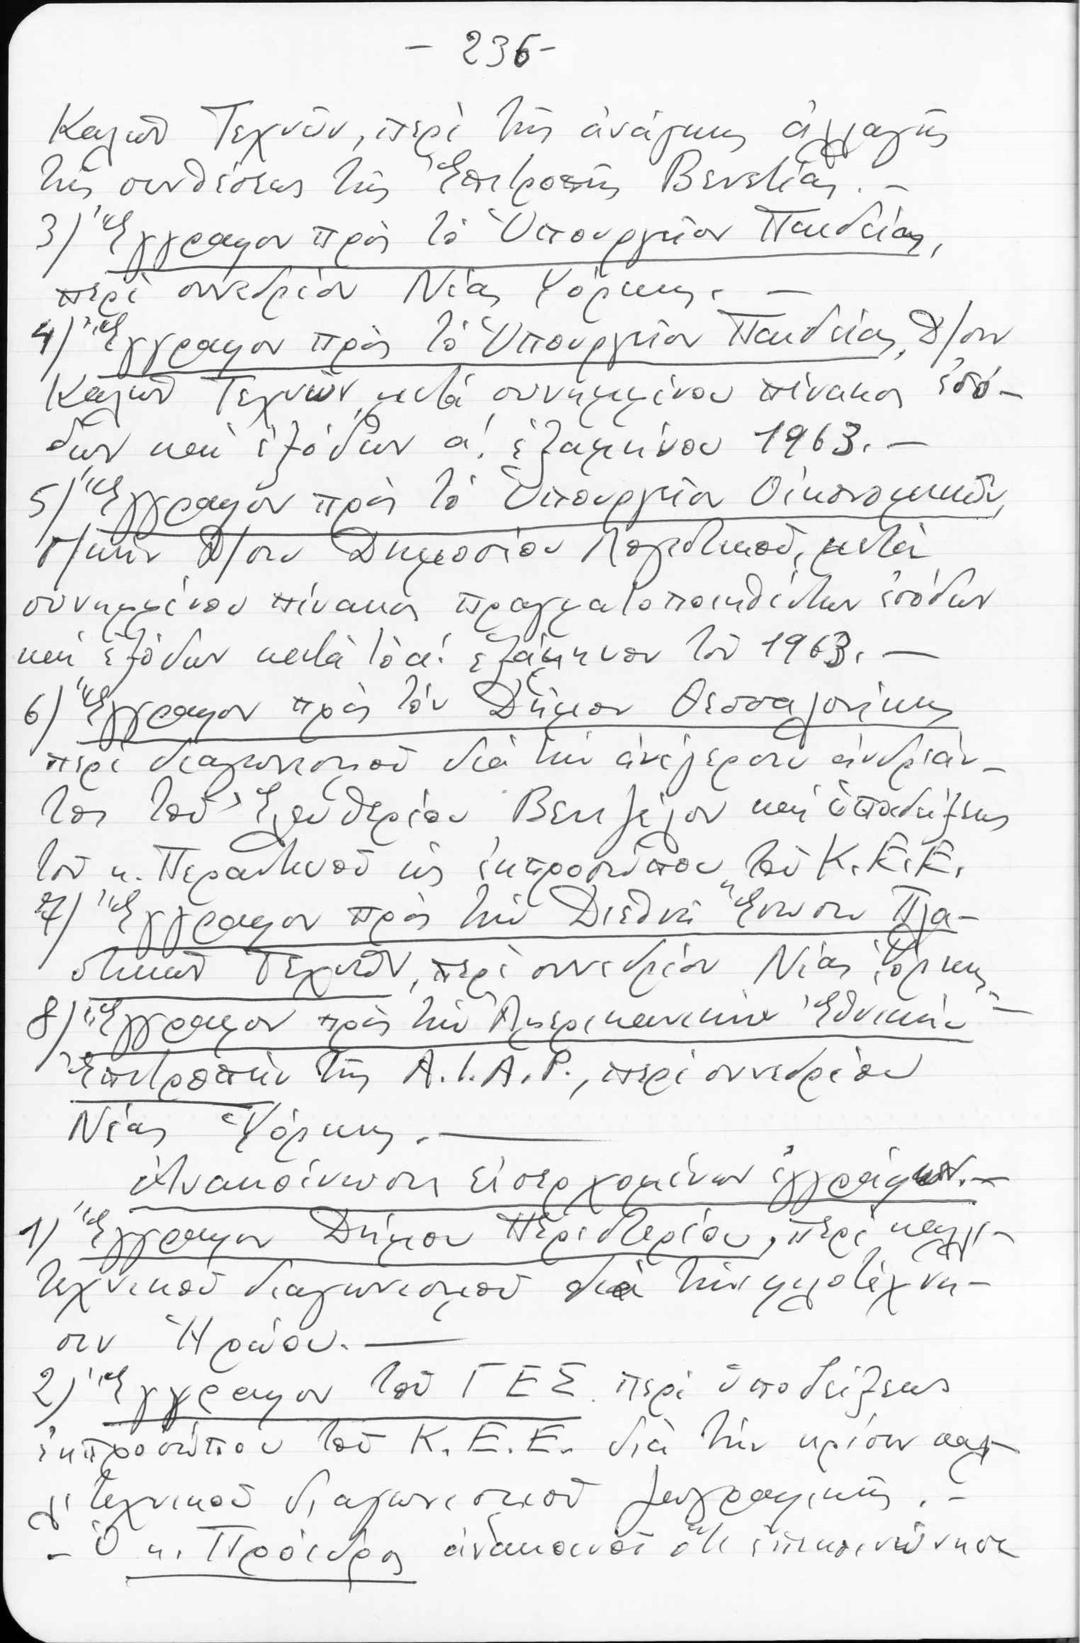 - 236 -
Καλῶν Τεχνῶν, περὶ τῆς ἀνάγκης ἀλλαγῆς
τῆς συνθέσεως τῆς Ἐπιτροπῆς Βενετίας. -
3) Ἔγγραφον πρὸς τὸ Ὑπουργεῖον Παιδείας,
περὶ συνεδρίου Νέας Ὑόρκης. -
4) Ἔγγραφον πρὸς τὸ Ὑπουργεῖον Παιδείας, Δ/σιν
Καλῶν Τεχνῶν, μετὰ συνημμένου πίνακος ἐσό-
δων καὶ ἐξόδων α! ἑξαμήνου 1963. -
5) Ἔγγραφον πρὸς τὸ Ὑπουργεῖον Οἰκονομικῶν,
Γ/κὴν Δ/σιν Δημοσίου Λογιστικοῦ, μετὰ
συνημμένου πίνακος πραγματοποιηθέντων ἐσόδων
καὶ ἐξόδων κατὰ τὸ α! ἑξάμηνον τοῦ 1963. -
6) Ἔγγραφον πρὸς τὸν Δῆμον Θεσσαλονίκης
περὶ διαγωνισμοῦ διὰ τὴν ἀνέγερσιν ἀνδριάν-
τος τοῦ Ἐλευθερίου Βενιζέλου καὶ ὑποδείξεως
τοῦ κ. Περαντινοῦ ὡς ἐκπροσώπου τοῦ Κ.Ε.Ε.
7) Ἔγγραφον πρὸς τὴν Διεθνῆ Ἕνωσιν Πλα-
στικῶν Τεχνῶν, περὶ συνεδρίου Νέας Ὑόρκης -
8) Ἔγγραφον πρὸς τὴν Ἀμερικανικὴν Ἐθνικὴν
Ἐπιτροπὴν τῆς A.I.A.P., περὶ συνεδρίου
Νέας Ὑόρκης. -
Ἀνακοίνωσις εἰσερχομένων ἐγγράφων. -
1) Ἔγγραφον Δήμου Περιστερίου, περὶ καλλι-
τεχνικοῦ διαγωνισμοῦ διὰ τὴν φιλοτέχνη-
σιν Ἡρώου. -
2) Ἔγγραφον τοῦ ΓΕΣ περὶ ὑποδείξεως
ἐκπροσώπου τοῦ Κ.Ε.Ε. διὰ τὴν κρίσιν καλ-
λιτεχνικοῦ διαγωνισμοῦ ζωγραφικῆς. -
- Ὁ κ. Πρόεδρος ἀνακοινοῖ ὅτι ἐπεκοινώνησε